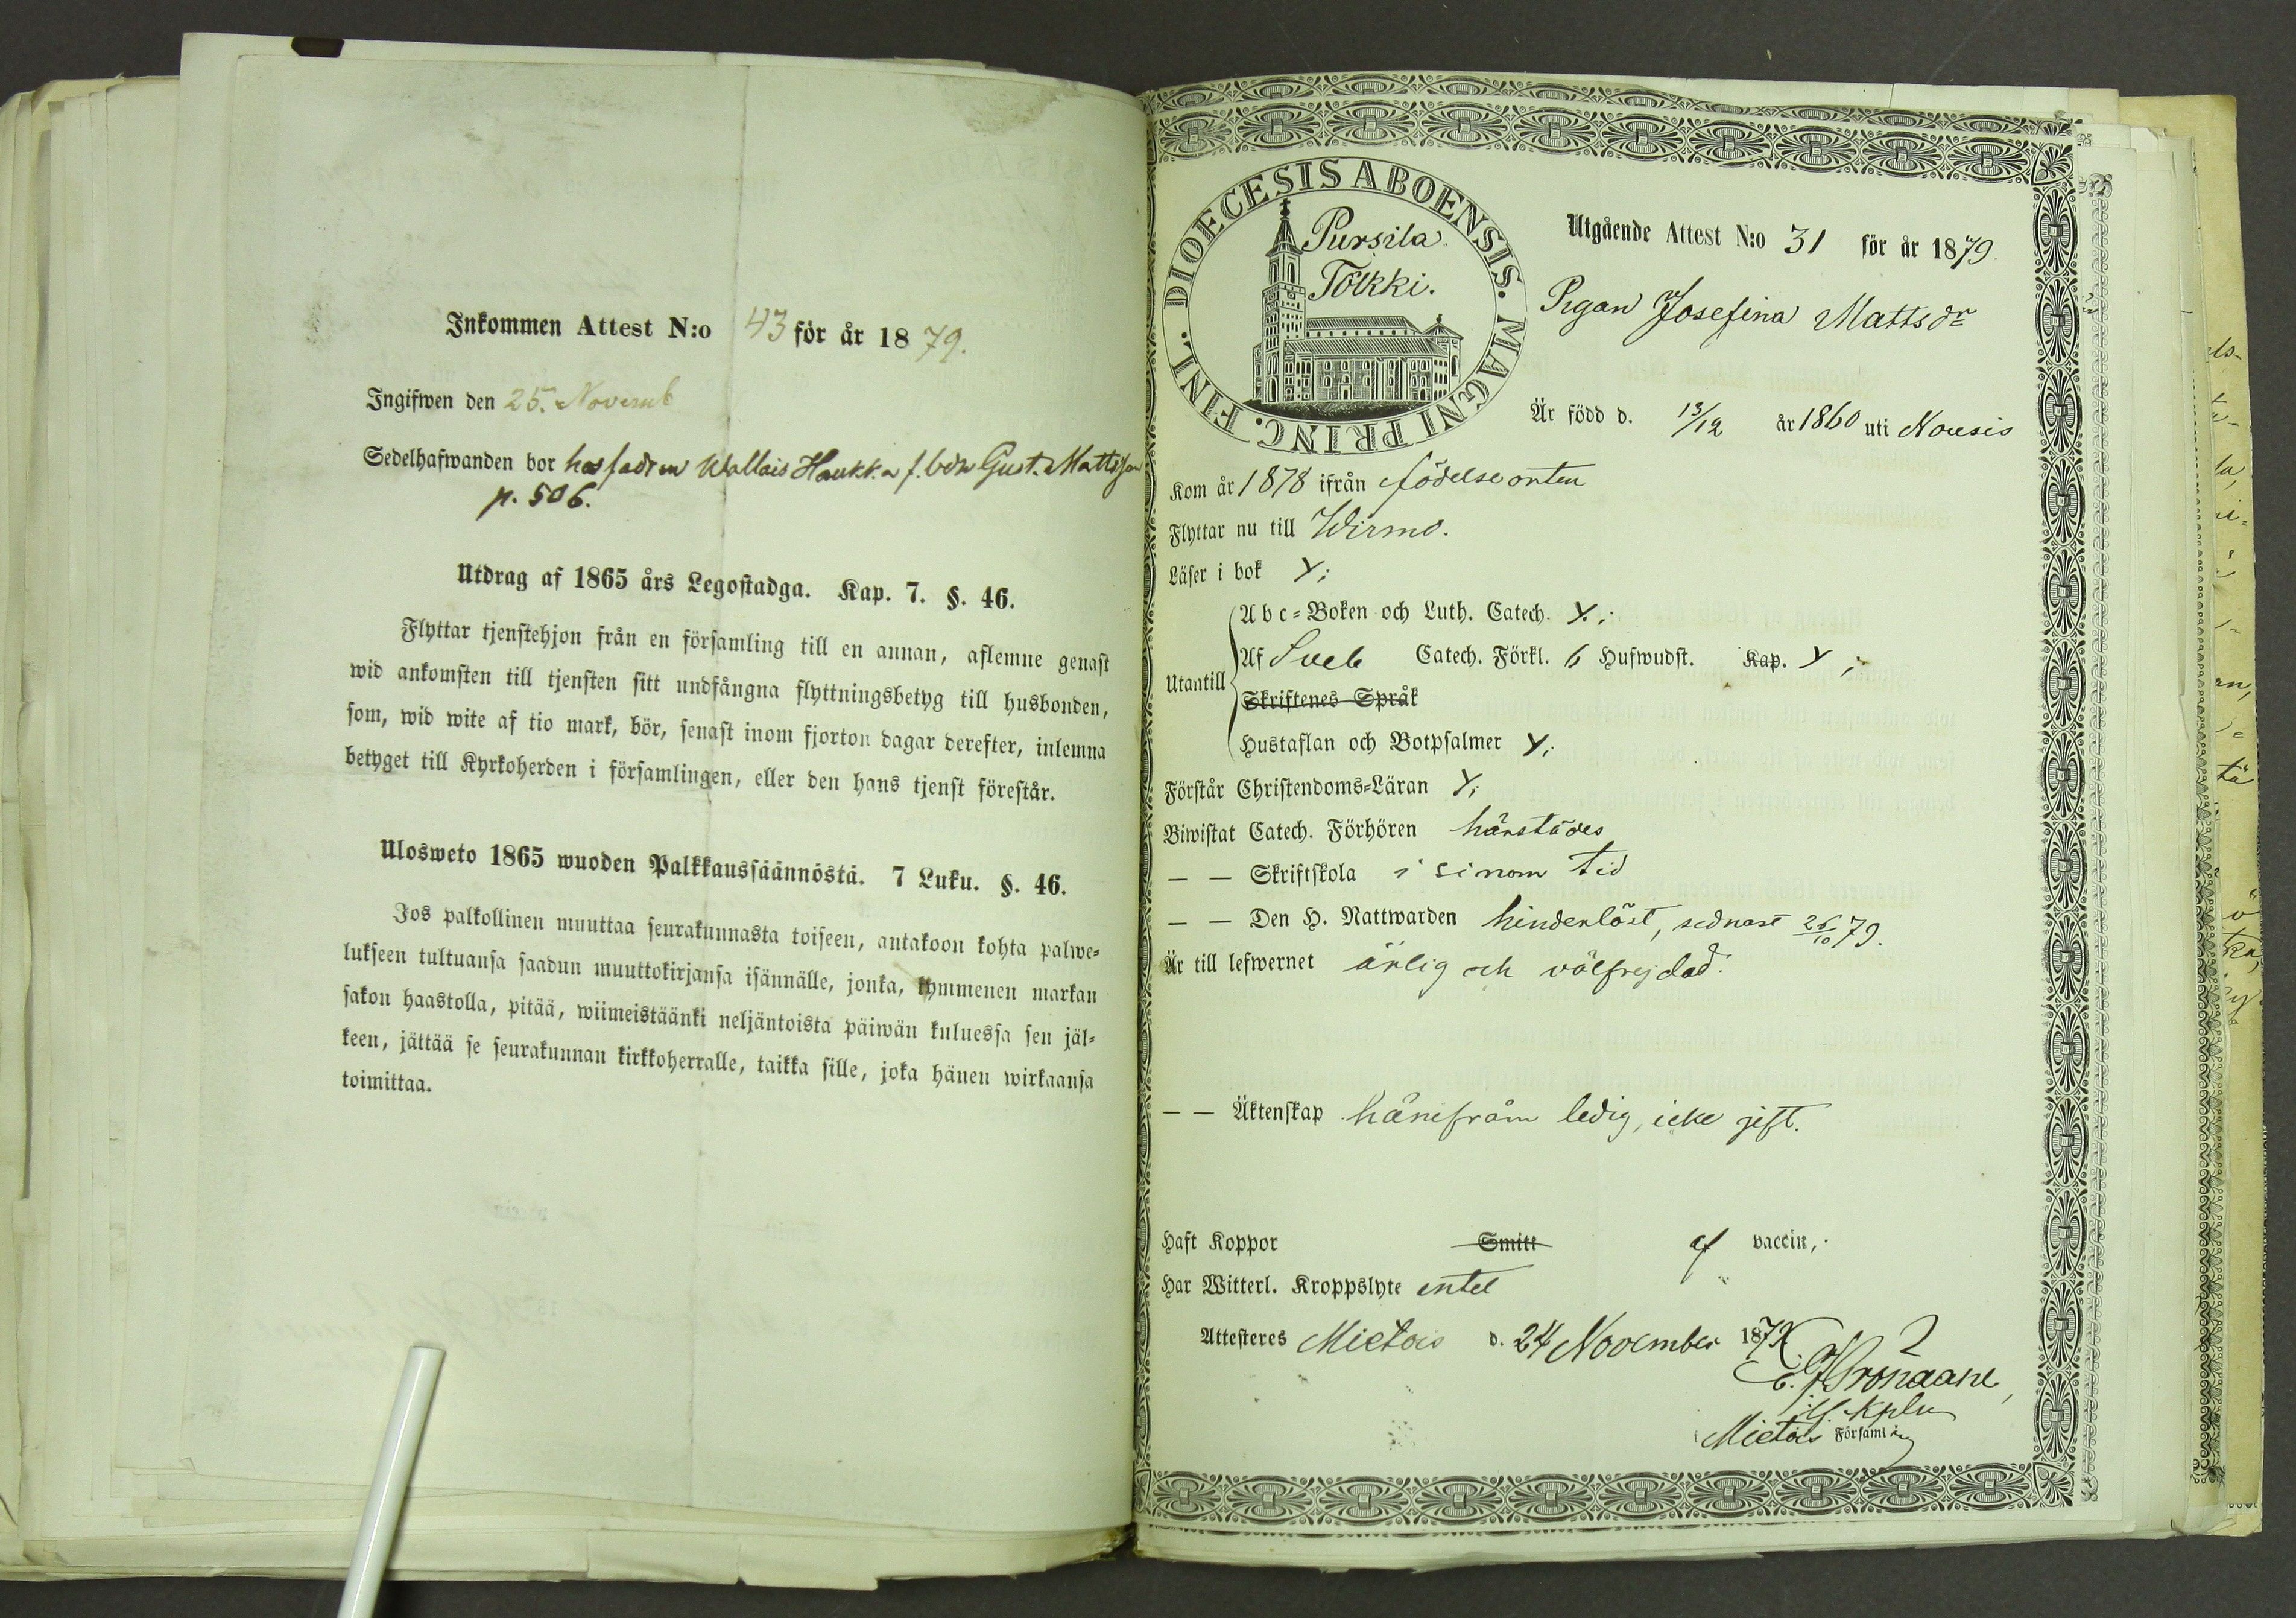 Inkommen Attest N:o 43 för år 1879.
Ingifwen den 25. Novemb
Sedelhafwanden bor hos fadren Wallais Haukka f. bdn Gust. Mattsson
p. 506.
Utdrag af 1865 års Legostadga. Kap. 7. §. 46.
Flyttar tjenstehjon från en församling till en annan, aflemne genast
wid ankomsten till tjensten sitt undfångna flyttningsbetyg till husbonden,
som, wid wite af tio mark, bör, senast inom fjorton dagar derefter, inlemna
betyget till Kyrkoherden i församlingen, eller den hans tjenst förestår.
Ulosweto 1865 wuoden Palkkaussäännöstä. 7 Luku. §. 46.
Jos palkollinen muuttaa seurakunnasta toiseen, antakoon kohta palwe-
lukseen tultuansa saadun muuttokirjansa isännälle, jonka, kymmenen markan
sakon haastolla, pitää, wiimeistäänki neljäntoista päiwän kuluessa sen jäl-
keen, jättää se seurakunnan kirkkoherralle, taikka sille, joka hänen wirkaansa
toimittaa.
DIOECESIS ABOENSIS. MAGNI PRINC. FINL.
Pursila
Tölkki.
Utgående Attest N:o 31 för år 1879.
Pigan Josefina Mattsdr
Är född d. 13/12 år 1860 uti Nousis
Kom år 1878 ifrån födelseorten
Flyttar nu till Wirmo.
Läser i bok y;
Utantill
Abc-Boken och Luth. Catech. y.;
Af Sveb Catech. Förkl. 6 Hufwudst. Kap. y;
Skriftenes Språk
Hustaflan och Botpsalmer y;
Förstår Christendoms-Läran y;
Biwistat Catech. Förhören härstädes
— — Skriftskola i sinom tid
— — Den H. Nattwarden hinderlöst, sednast 26/10 79.
Är till lefwernet ärlig och välfrejdad.
— — Äktenskap härifrån ledig, icke gift.
Haft Koppor Smitt af vaccin,
Har Witterl. Kroppslyte intet
Attesteres Mietois d. 24 November 1879
Mietois Församling